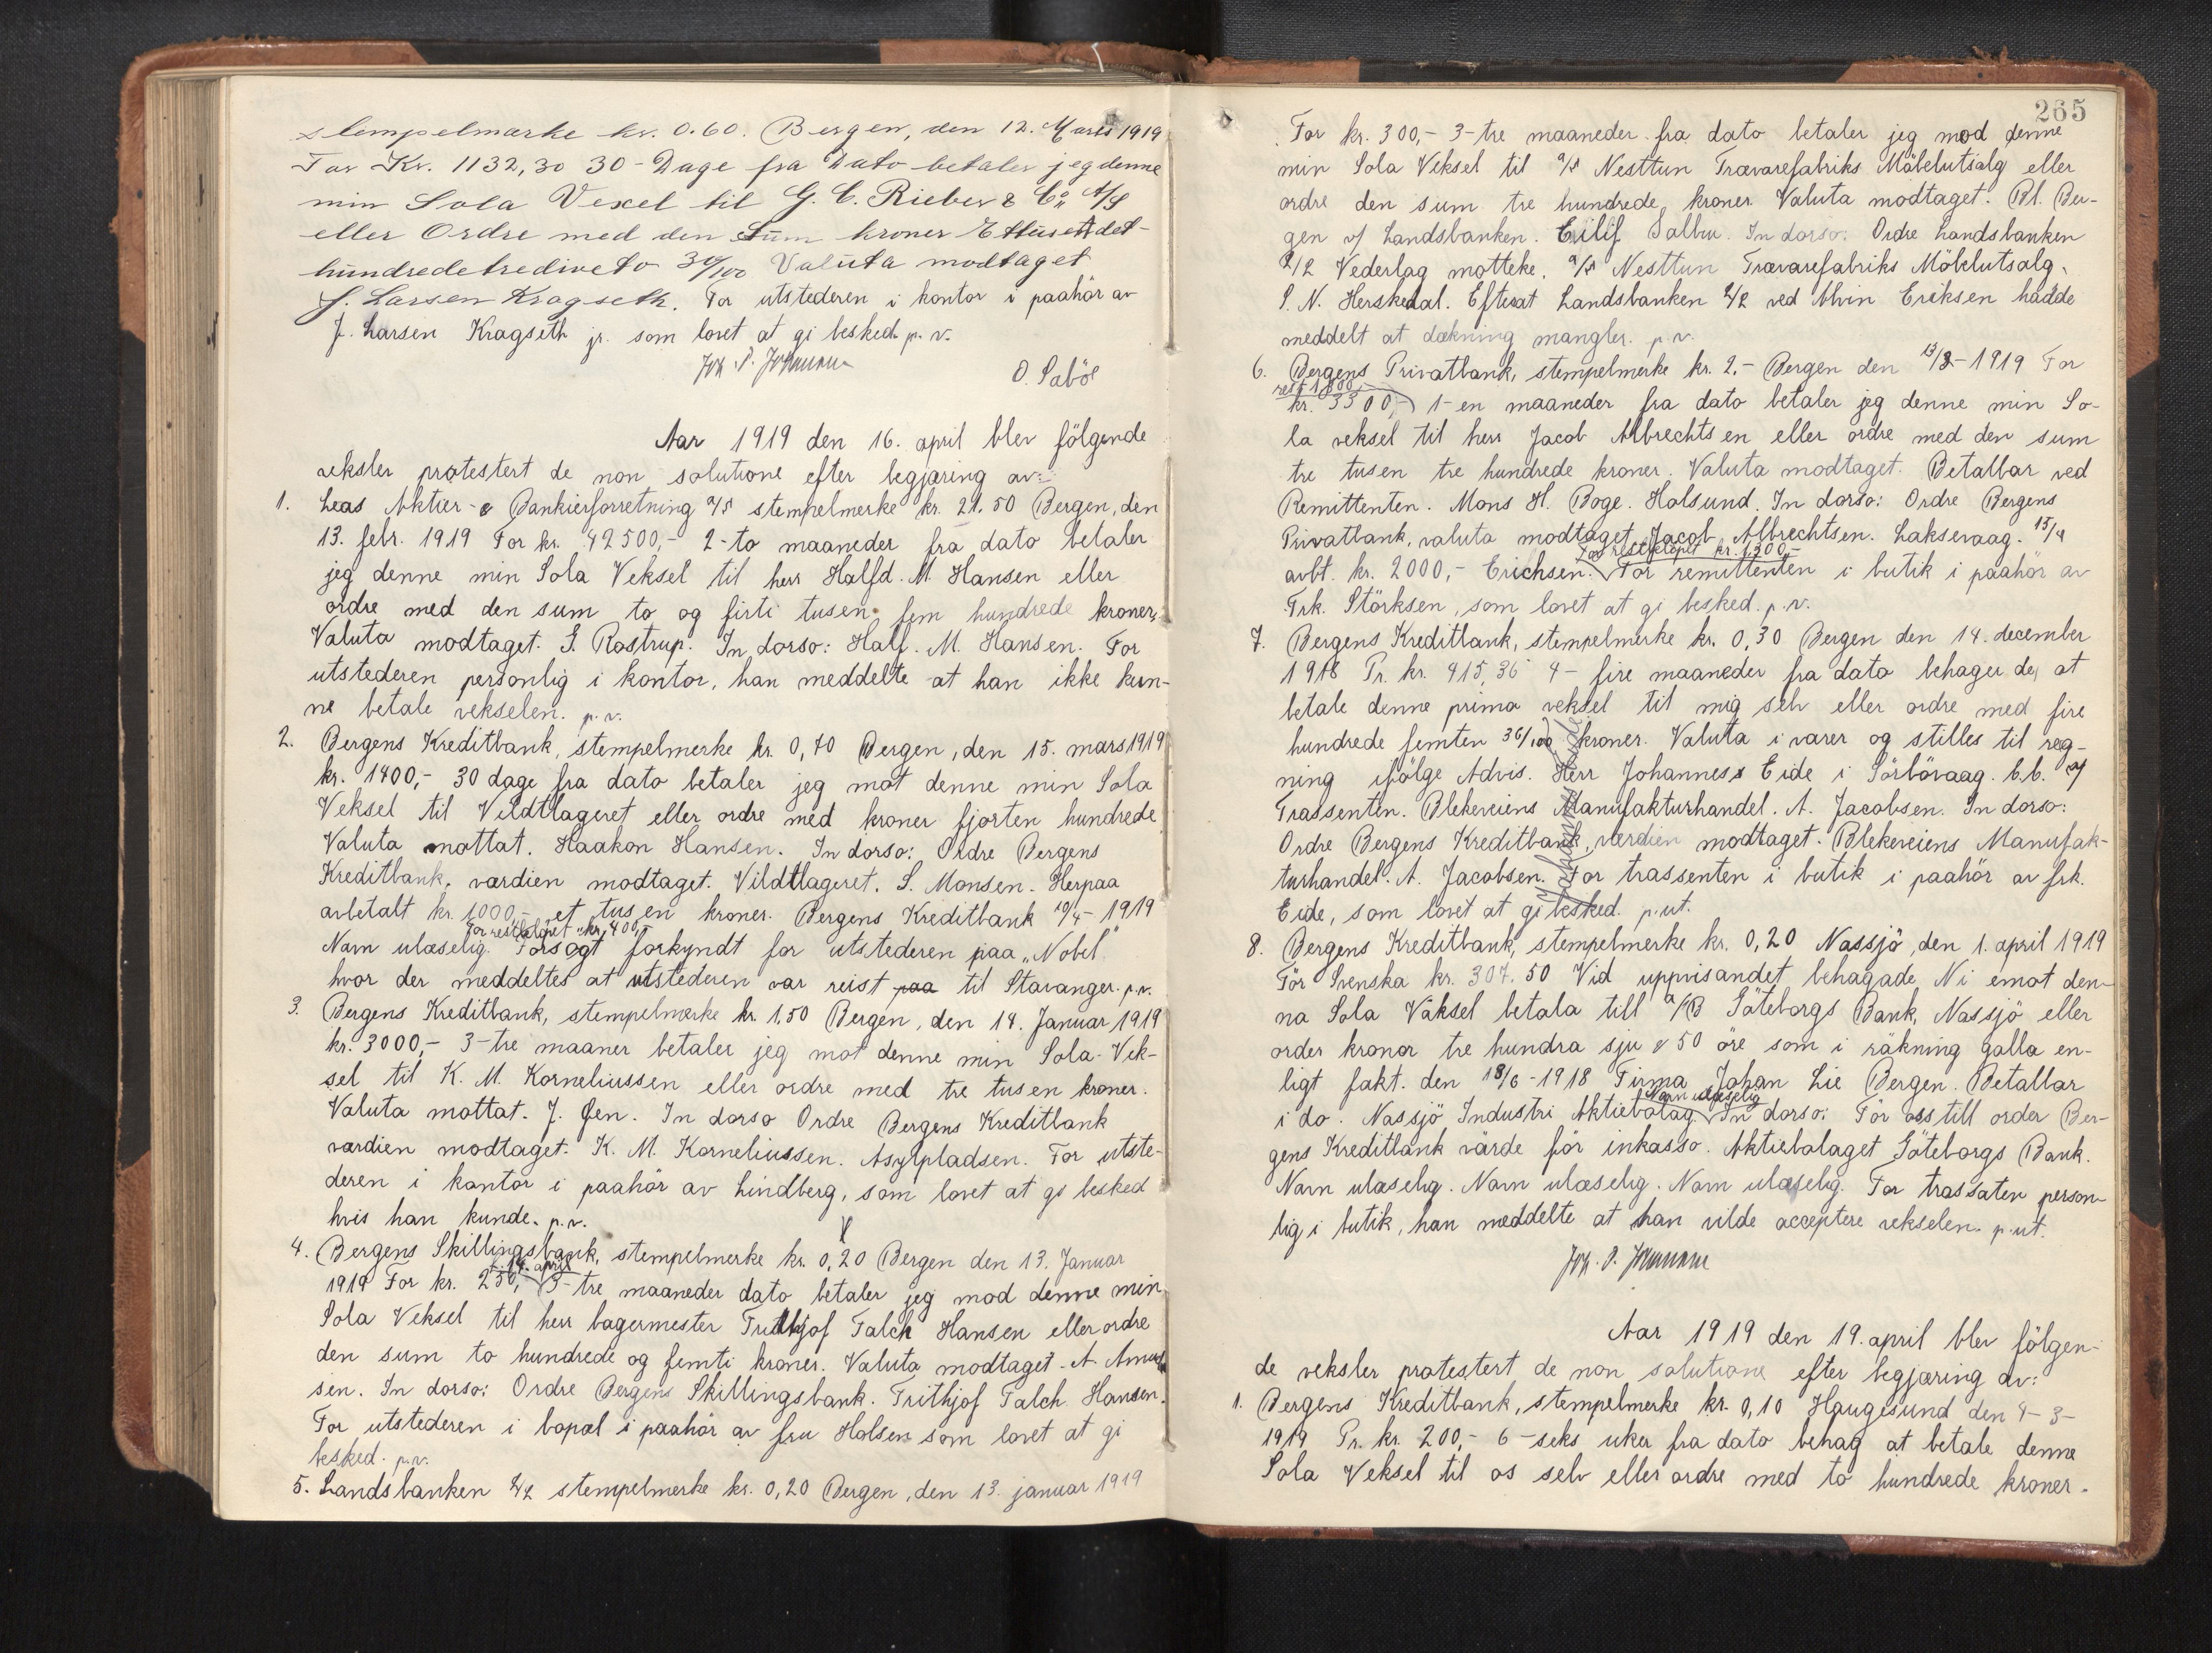 stempelmarke kr. 0.60. Bergen, den 12. Marts 1919
For Kr. 1132,30 30-Dage fra Dato betaler jeg denne
min Sola Vexel til G. C. Rieber & Co A/S
eller Ordre med den Sum kroner Ettusetdet-
hundredetrediveto 30/100 Valuta modtaget
J. Larsen Kragseth. For utstederen i kontor i paahör av
J. Larsen Kragseth jr. som lovet at gi besked. p.v.
O. Saböe
Aar 1919 den 16. april blev fölgende
veksler protestert de non solutione efter begjæring av:
1. Leas Aktier- & Bankierforretning a/s stempelmerke kr. 21.50 Bergen, den
13. febr. 1919 For kr. 42500,- 2-to maaneder fra dato betaler
jeg denne min Sola Veksel til herr Halfd. M. Hansen eller
ordre med den sum to og firti tusen fem hundrede kroner,
Valuta modtaget. G. Rostrup. In dorso: Half. M. Hansen. For
utstederen personlig i kontor, han meddelte at han ikke kun-
ne betale vekselen. p.v.
2. Bergens Kreditbank, stempelmerke kr. 0,70 Bergen, den 15. mars 1919
kr. 1400,- 30 dage fra dato betaler jeg mot denne min Sola
Veksel til Vildtlageret eller ordre med kroner fjorten hundrede
Valuta mottat. Haakon Hansen. In dorso: Ordre Bergens
Kreditbank, værdien modtaget. Vildtlageret. S. Monsen. Herpaa
avbetalt kr. 1000,- et tusen kroner. Bergens Kreditbank 10/4-1919
For restbelöpet kr. 400,-
Navn ulæselig. Forsøgt forkyndt for utstederen paa "Nobel"
hvor der meddeltes at utstederen var reist paa til Stavanger. p.v.
3. Bergens Kreditbank, stempelmerke kr. 1,50 Bergen, den 14. Januar 1919
kr. 3000,- 3-tre maaner betaler jeg mot denne min Sola-Vek-
sel til K. M. Korneliussen eller ordre med tre tusen kroner.
Valuta mottat. J. Gen. In dorso Ordre Bergens Kreditbank
værdien modtaget. K. M. Korneliussen. Asylpladsen. For utste-
deren i kontor i paahör av Lindberg, som lovet at gi besked
hvis han kunde. p.v.
4. Bergens Skillingsbank, stempelmerke kr. 0,20 Bergen den 13. Januar
14. april
1919 For kr. 250,- 3-tre maaneder dato betaler jeg mod denne min
Sola Veksel til herr bagermester Frithjof Falch Hansen eller ordre
den sum to hundrede og femti kroner. Valuta modtaget. A. Amund
sen. In dorso: Ordre Bergens Skillingsbank. Frithjof Falch Hansen.
For utstederen i bopæl i paahör av fru Halsen som lovet at gi
besked. p.v.
5. Landsbanken A/L stempelmerke kr. 0,20 Bergen, den 13. januar 1919
265
For kr. 300,- 3-tre maaneder fra dato betaler jeg mod denne
min Sola Veksel til a/s Nesttun Trævarefabriks Möbelutsalg eller
ordre den sum tre hundrede kroner Valuta modtaget. Bl. Ber-
gen v/ Landsbanken. Eilif Salbu. In dorso: Ordre Landsbanken
A/L Vederlag motteke. a/s Nesttun Trævarefabriks Möbelutsalg.
S. N. Herskedal. Efterat Landsbanken A/L ved Alvin Eriksen hadde
meddelt at dækning mangler. p.v.
6. Bergens Privatbank, stempelmerke kr. 2,- Bergen den 13/3-1919 For
rest 1300,-
kr. 3300,- 1-en maaneder fra dato betaler jeg denne min So-
la veksel til herr Jacob Albrechtsen eller ordre med den sum
tre tusen tre hundrede kroner. Valuta modtaget. Betalbar ved
Remittenten. Mons H. Boge. Holsund. In dorso: Ordre Bergens
Privatbank, valuta modtaget Jacob Albrechtsen. Laksevaag. 15/4
for restbelöpet kr. 1300,-
avbt. kr. 2000,- Erichsen. For remittenten i butik i paahör av
Frk. Störksen, som lovet at gi besked. p.v.
7. Bergens Kreditbank, stempelmerke kr. 0,30 Bergen den 14. december
1918 Pr. kr. 415,36 4-fire maaneder fra dato behager de, at
betale denne prima veksel til mig selv eller ordre med fire
hundrede femten 36/100 kroner. Valuta i varer og stilles til reg-
ning ifölge Advis. Herr Johannes Eide i Sörbövaag. b.b. v/
Trassenten. Blekereiens Manufakturhandel. A. Jacobsen. In dorso:
Johannes Eide
Ordre Bergens Kreditbank, værdien modtaget. Blekereiens Manufak-
turhandel. A. Jacobsen. For trassenten i butik i paahör av frk.
Eide, som lovet at gi besked. p.ut.
8. Bergens Kreditbank, stempelmerke kr. 0,20 Nassjö, den 1. april 1919
För Svenska kr. 307.50 Vid uppvisandet behagade Ni emot den-
na Sola Växsel betala till A/B Göteborgs Bank, Nassjö eller
order kronor tre hundra sju & 50 öre som i räkning galla en-
ligt fakt. den 18/6-1918 Firma Johan Lie Bergen. Betalbar
Navn ulæselig
i do. Nassjö Industri Aktiebolag. In dorso: För oss till order Ber-
gens Kreditbank värde för inkasso. Aktiebolaget Göteborgs Bank.
Navn ulæselig. Navn ulæselig. Navn ulæselig. For trassaten person-
lig i butik, han meddelte at han vilde acceptere vekselen. p.ut.
Aar 1919 den 19. april blev fölgen-
de veksler protestert de non solutione efter begjæring av:
1. Bergens Kreditbank, stempelmerke kr. 0,10 Haugesund den 4-3-
1919 Pr. kr. 200,- 6-seks uker fra dato behag at betale denne
Sola Veksel til os selv eller ordre med to hundrede kroner.